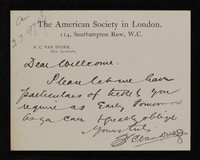 The American Society in London.
114, Southampton Row, W.C.
F. C. VAN DUZER,
Hon. Secretary.
Dear Wellcome.
Please let me have
particulars of tickets you
require as early tomorrow
as you can & greatly oblige
Yours truly
F C Van Duzer